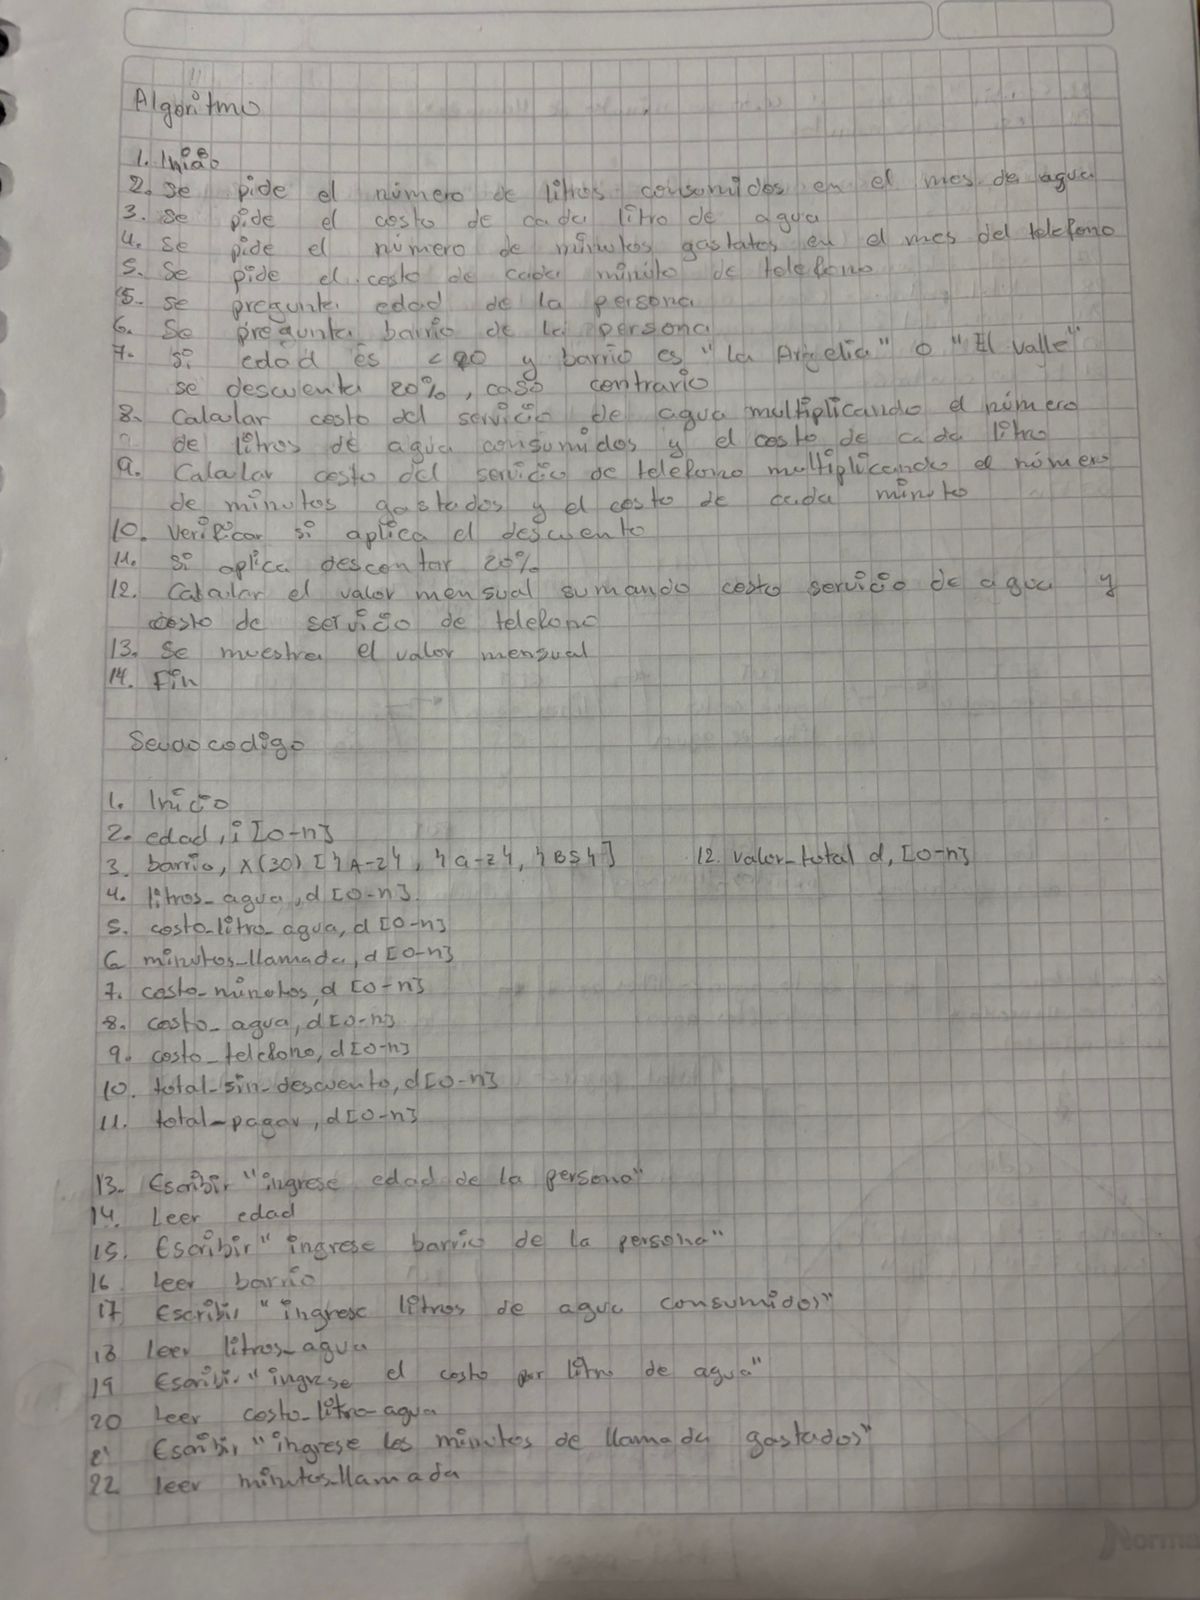 Algoritmo
1. Inicio
2. Se pide el número de litros consumidos en el mes de agua
3. Se pide el costo de cada litro de agua
4. Se pide el número de minutos gastates en el mes del telefono
5. Se pide el costo de cada minuto de telefono
5. Se pregunta edad de la persona
6. Se pregunta barrio de la persona
7. Si edad es < y barrio es "la Argelia" o "El valle"
se descuenta 20%, caso contrario
8. Calcular costo del servicio de agua multiplicando el número
de litros de agua consumidos y el costo de cada litro
9. Calcular costo del servicio de telefono multiplicando el número
de minutos gastados y el costo de cada minuto
10. Verificar si aplica el descuento
11. Si aplica descontar 20%
12. Calcular el valor mensual sumando costo servicio de agua y
costo de servicio de telefono
13. Se muestra el valor mensual
14. Fin
Seudocodigo
1. Inicio
2. edad, i [0-n]
3. barrio, x(30) [A-z, a-z, BS]
12. valor_total d, [0-n]
4. litros_agua, d [0-n]
5. costo_litro_agua, d [0-n]
6 minutos_llamada, d [0-n]
7. costo_minutos, d [0-n]
8. costo_agua, d [0-n]
9. costo_telefono, d [0-n]
10. total_sin_descuento, d [0-n]
11. total_pagar, d [0-n]
13. Escribir "ingrese edad de la persona"
14. Leer edad
15. Escribir "ingrese barrio de la persona"
16 leer barrio
17 Escribir "ingrese litros de agua consumidos"
18 leer litros_agua
19 Escribir "ingrese el costo por litro de agua"
20 Leer costo_litro_agua
21 Escribir "ingrese los minutos de llamada gastados"
22 leer minutos_llamada
Norma